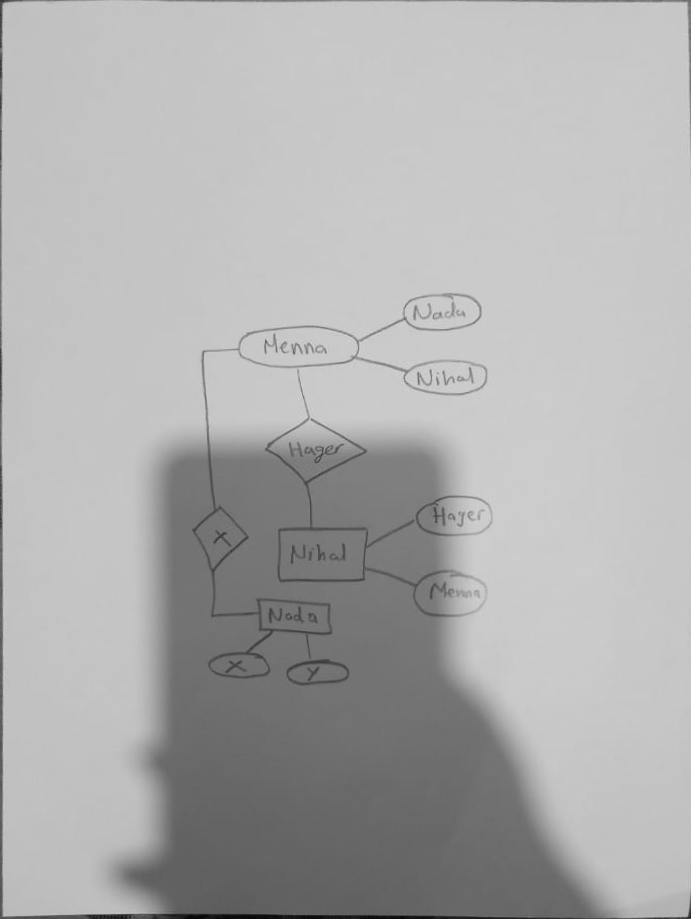 Nada
Menna
Nihal
Hager
Hager
X
Nihal
Menna
Nada
X
Y